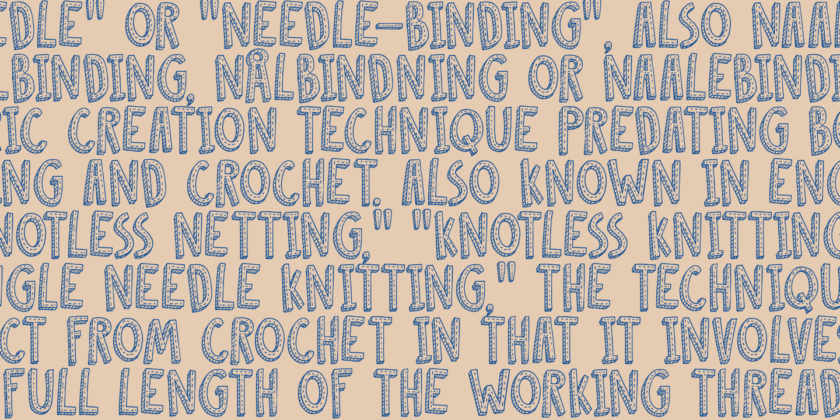 EDLE" OR "NEEDLE-BINDING", ALSO NAA
LBINDING, NÅLBINDNING OR NAALEBINDI
RIC CREATION TECHNIQUE PREDATING BO
ING AND CROCHET. ALSO KNOWN IN ENG
NOTLESS NETTING," "KNOTLESS KNITTING
NGLE NEEDLE KNITTING," THE TECHNIQU
CT FROM CROCHET IN THAT IT INVOLVES
FULL LENGTH OF THE WORKING THREAD